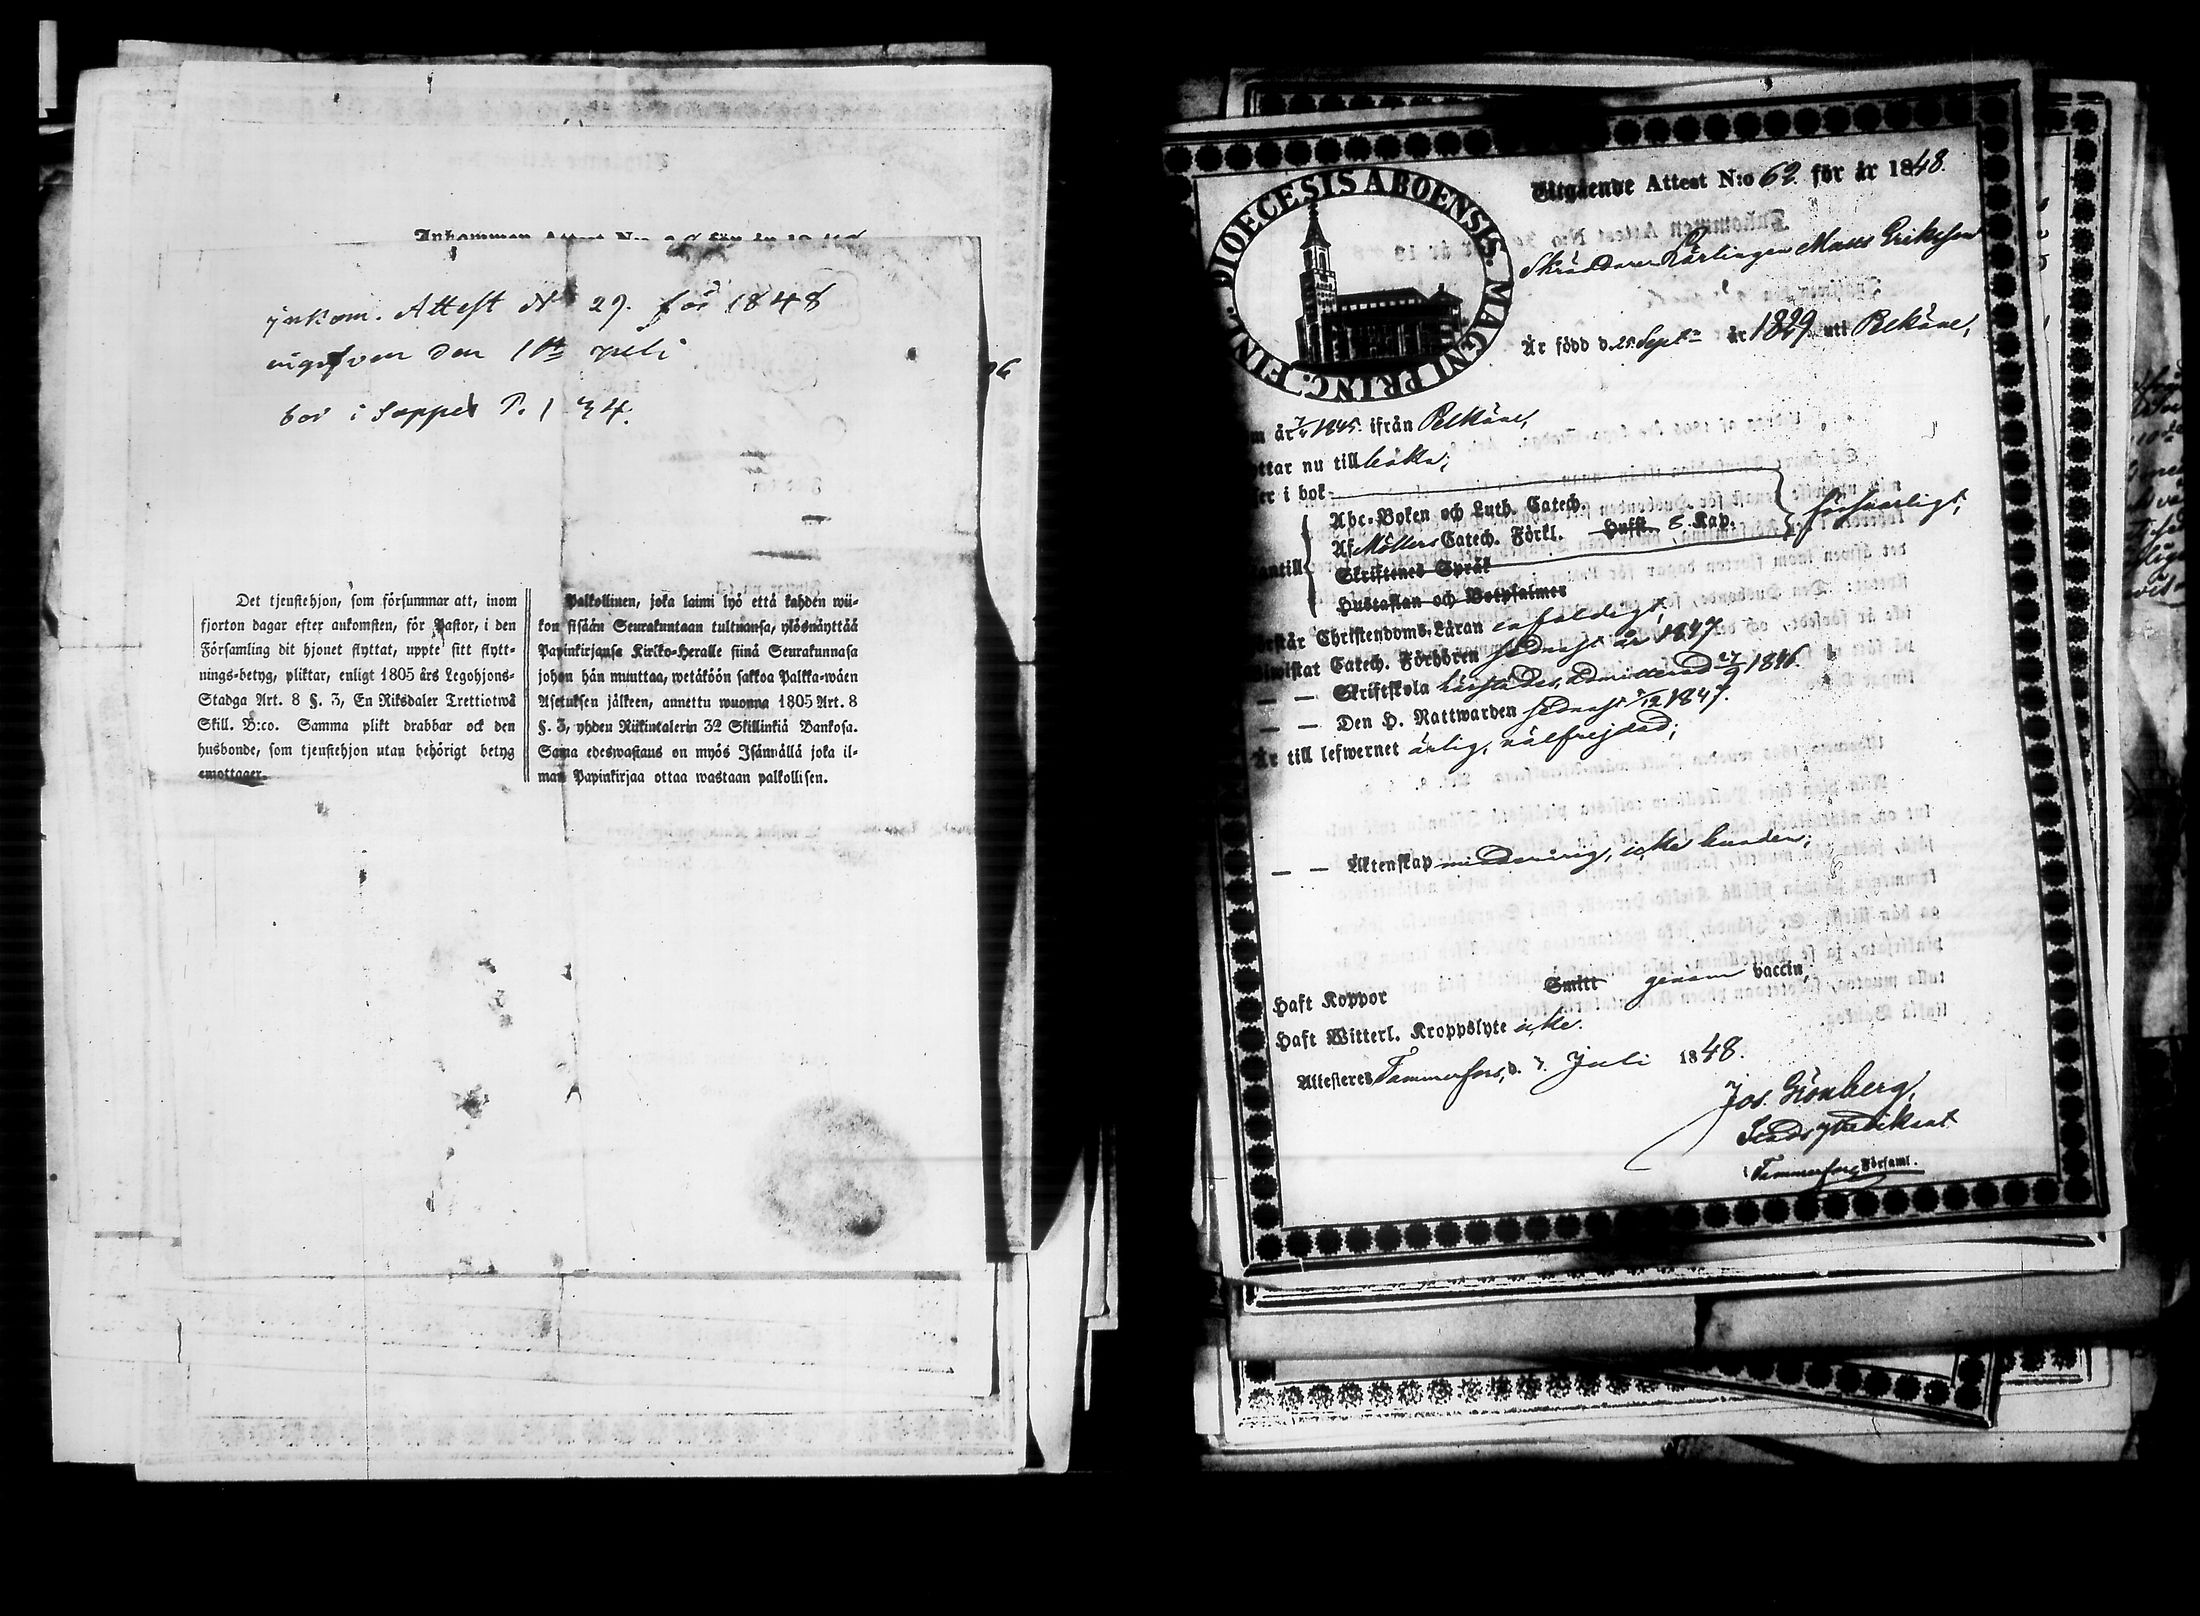 inkom. Attest No 29. för 1848
ingifven den 1sta juli
bor i Seppel P. 134.
Det tjenstehjon, som försummar att, inom
fjorton dagar efter ankomsten, för Pastor, i den
Församling dit hjonet flyttat, uppte sitt flytt-
nings-betyg, pliktar, enligt 1805 års Legohjons-
Stadga Art. 8 §. 3, En Riksdaler Trettiotwå
Skill. B:co. Samma plikt drabbar ock den
husbonde, som tjenstehjon utan behörigt betyg
emottager.
Palkollinen, joka laimi lyö että kahden wii-
kon sisään Seurakuntaan tultuansa, ylösnäyttää
Papinkirjansa Kirkko-Heralle siinä Seurakunnasa
johon hän muuttaa, wetäköön sakkoa Palkka-wäen
Asetuksen jälkeen, annettu wuonna 1805 Art. 8
§. 3, yhden Riikintalerin 32 Skillinkiä Bankosa.
Sama edeswastaus on myös Isännällä joka il-
man Papinkirjaa ottaa wastaan palkollisen.
DIOECESIS ABOENSIS. MAGNI PRINC. FINL.
Utgående Attest N:o 62. för år 1848.
Skräddare Lärlingen Matts Eriksson
Är född d. 25 Sept. år 1829 uti Pelkäne,
m år 7/4 1845. ifrån Pelkäne,
ttar nu till
er i bok
Abc-Boken och Luth. Catech.
Af Möllers Catech. Förkl. Hufst. 8. Kap.
försvarligt,
antill
Skriftenes Språk
Hustaflan och Botpsalmer
rstår Christendoms-Läran enfaldigt,
Biwistat Catech. Förhören sednast år 1847
— — Skriftskola härstädes, admitterad 27/9 1846.
— — Den H. Nattwarden sednast 5/12 1847.
Är till lefwernet ärlig, välfrejdad;
— — Äktenskap minderårig, icke bunden;
Haft Koppor Smitt genom vaccin,
Haft Witterl. Kroppslyte icke.
Attesteres Tammerfors, d. 7. Juli 1848.
Jos. Grönberg,
Stadspredikant
i Tammerfors Församl.